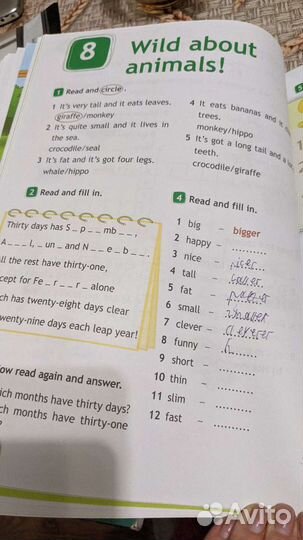 8 Wild about
animals!
1 Read and circle.
1 It's very tall and it eats leaves.
giraffe/monkey
2 It's quite small and it lives in
the sea.
crocodile/seal
3 It's fat and it's got four legs.
whale/hippo
4 It eats bananas and it
trees.
monkey/hippo
5 It's got a long tail and
teeth.
crocodile/giraffe
2 Read and fill in.
Thirty days has S _ p _ _ mb _ _,
A _ _ _ l, _ un _ and N _ _ e _ b _ _.
ll the rest have thirty-one,
cept for Fe _ r _ _ r _ alone
ch has twenty-eight days clear
wenty-nine days each leap year!
ow read again and answer.
ich months have thirty days?
ch months have thirty-one
?
4 Read and fill in.
1 big – bigger
2 happy –
3 nice – nicer
4 tall – taller
5 fat –
6 small – smaller
7 clever – cleverer
8 funny –
9 short –
10 thin –
11 slim –
12 fast –
Avito